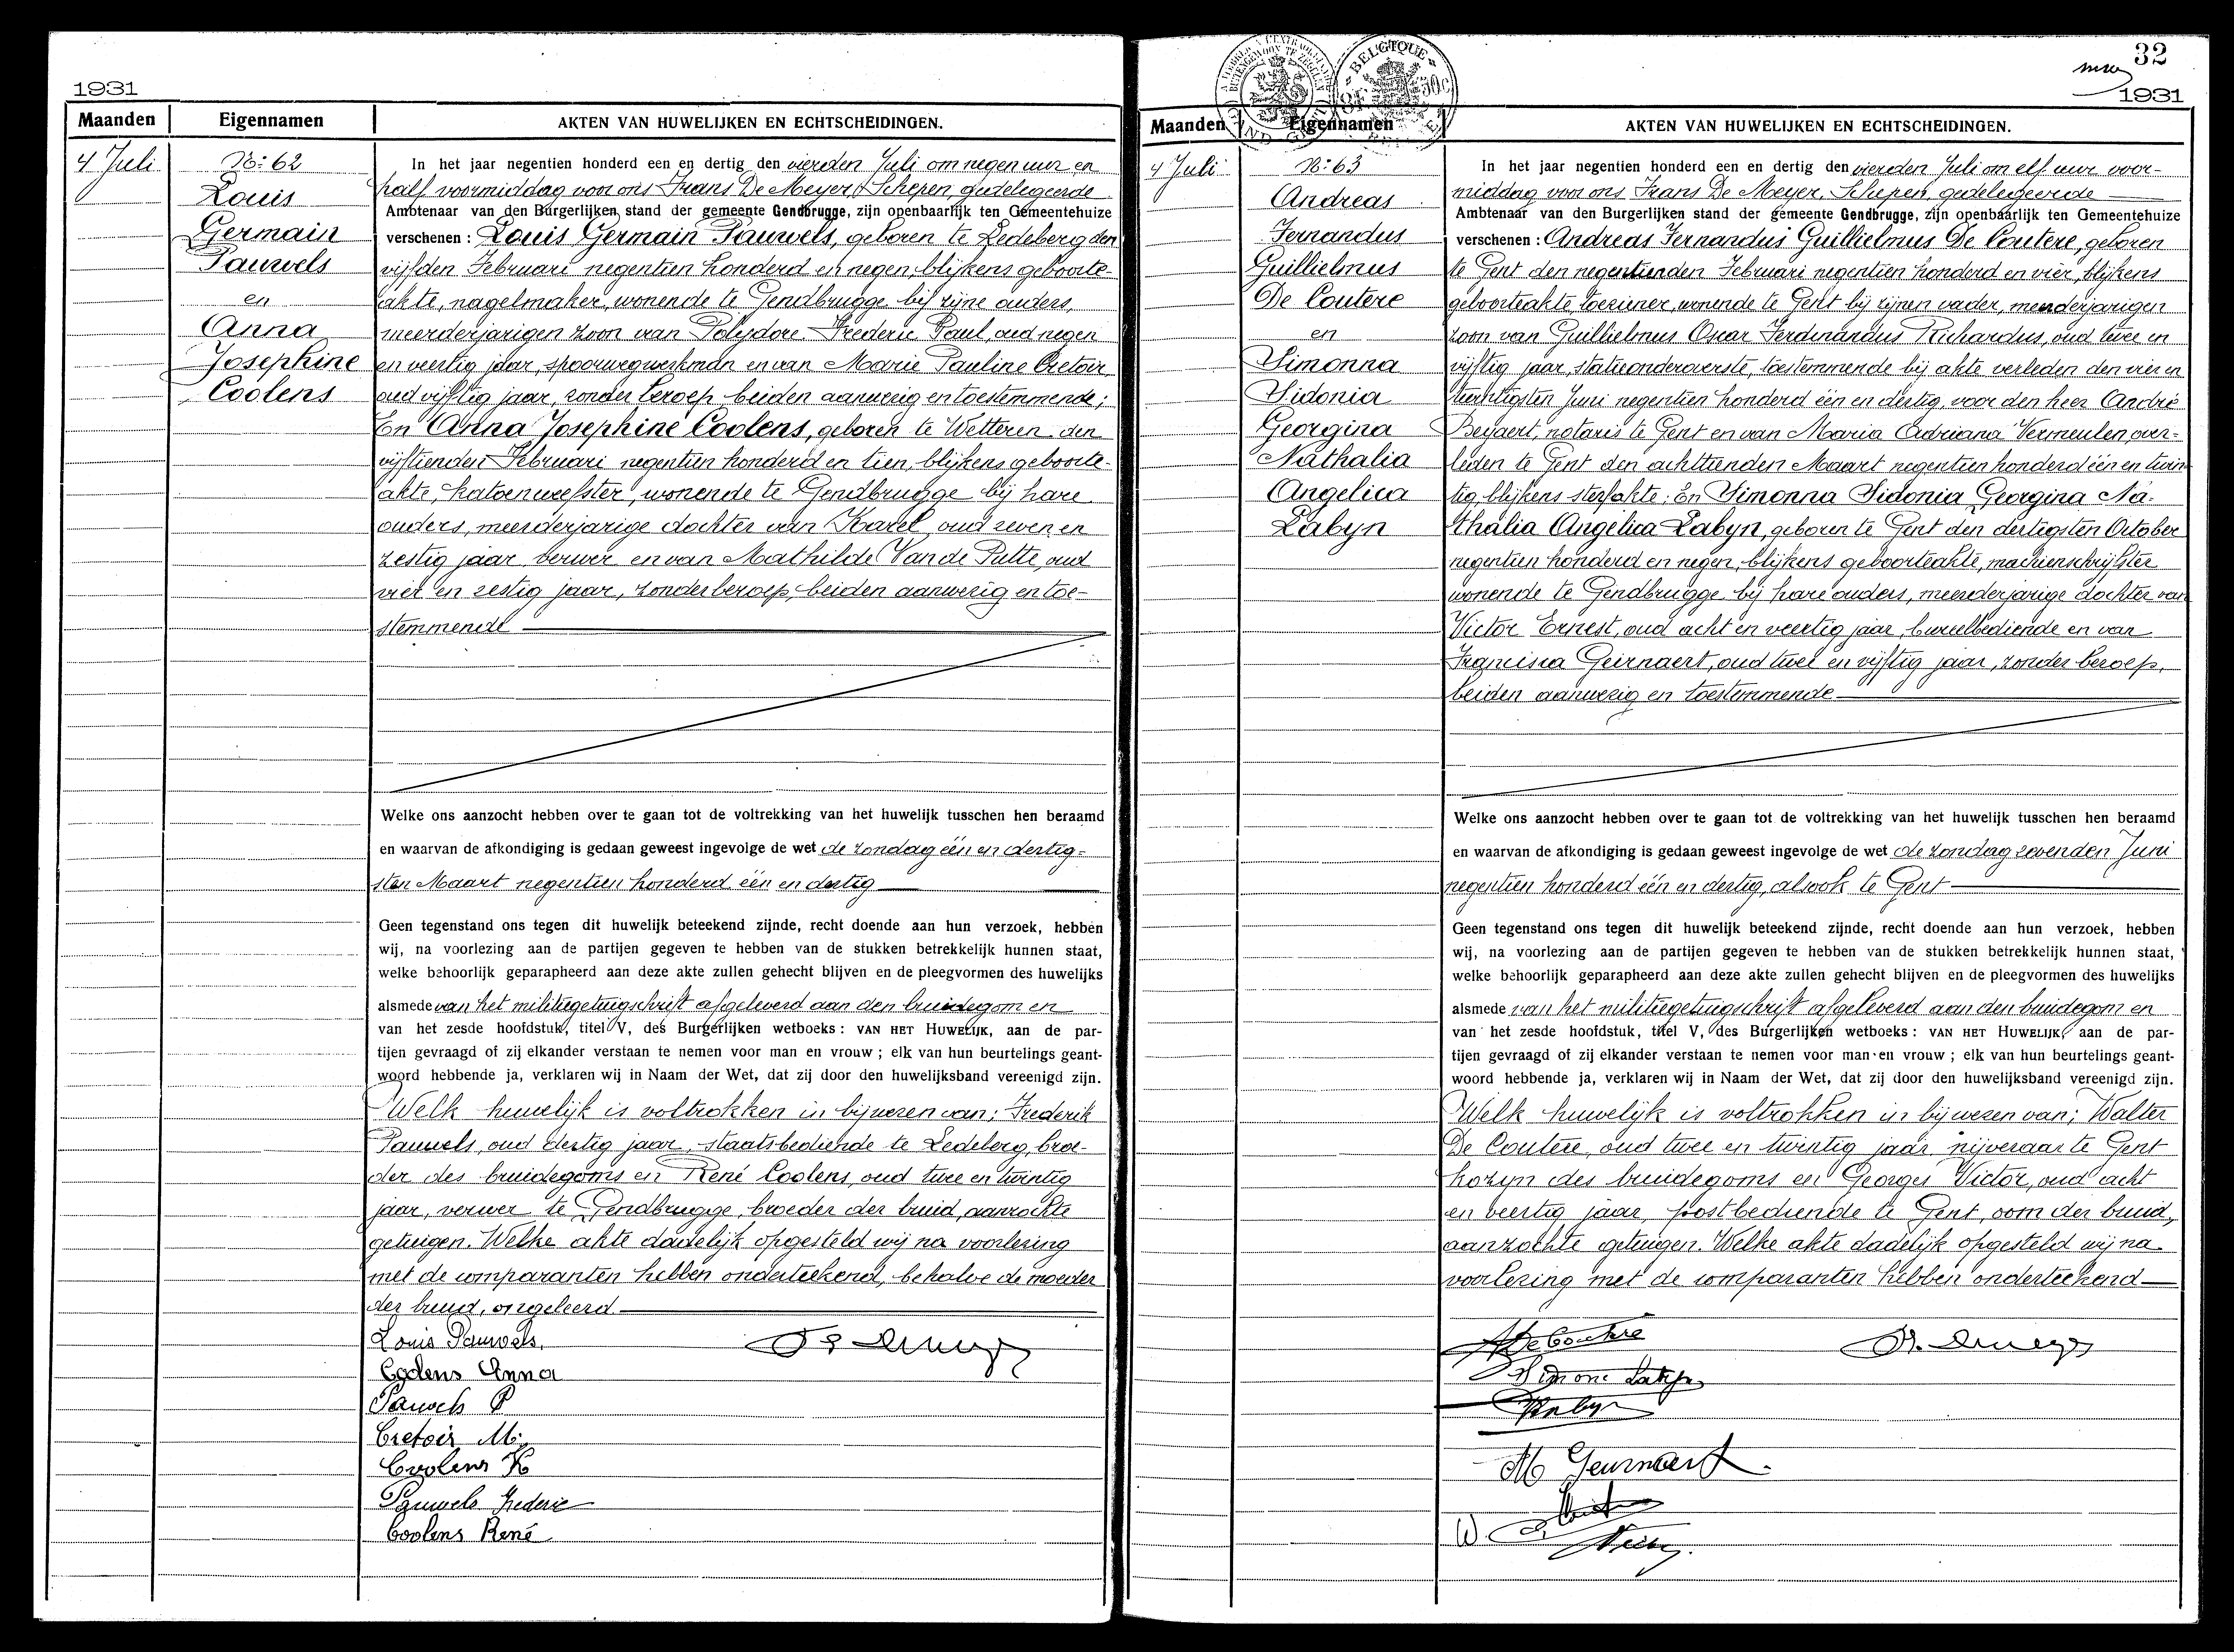 1931
Maanden Eigennamen AKTEN VAN HUWELIJKEN EN ECHTSCHEIDINGEN.
4 Juli
No: 62
Louis
Germain
Pauwels
en
Anna
Josephine
Coolens
In het jaar negentien honderd een en dertig den vierden Juli om negen uur en
half voormiddag voor ons Frans De Meyer, Schepen, gedelegeerde
Ambtenaar van den Burgerlijken stand der gemeente Gendbrugge, zijn openbaarlijk ten Gemeentehuize
verschenen : Louis Germain Pauwels, geboren te Ledeberg den
vijfden Februari negentien honderd en negen, blijkens geboorte-
akte, nagelmaker, wonende te Gendbrugge bij zijne ouders,
meerderjarigen zoon van Polydore Frederic Paul, oud negen
en veertig jaar, spoorwegwerkman en van Marie Pauline Cretoir,
oud vijftig jaar, zonder beroep, beiden aanwezig en toestemmende;
En Anna Josephine Coolens, geboren te Wetteren den
vijftienden Februari negentien honderd en tien, blijkens geboorte-
akte, katoenweefster, wonende te Gendbrugge bij hare
ouders, meerderjarige dochter van Karel, oud zeven en
zestig jaar, verwer en van Mathilde Van de Putte, oud
vier en zestig jaar, zonder beroep, beiden aanwezig en toe-
stemmende
Welke ons aanzocht hebben over te gaan tot de voltrekking van het huwelijk tusschen hen beraamd
en waarvan de afkondiging is gedaan geweest ingevolge de wet de zondag één en dertig-
sten Maart negentien honderd één en dertig
Geen tegenstand ons tegen dit huwelijk beteekend zijnde, recht doende aan hun verzoek, hebben
wij, na voorlezing aan de partijen gegeven te hebben van de stukken betrekkelijk hunnen staat,
welke behoorlijk geparapheerd aan deze akte zullen gehecht blijven en de pleegvormen des huwelijks
alsmede van het militiegetuigschrift afgeleverd aan den bruidegom en
van het zesde hoofdstuk, titel V, des Burgerlijken wetboeks : VAN HET HUWELIJK, aan de par-
tijen gevraagd of zij elkander verstaan te nemen voor man en vrouw ; elk van hun beurtelings geant-
woord hebbende ja, verklaren wij in Naam der Wet, dat zij door den huwelijksband vereenigd zijn.
Welk huwelijk is voltrokken in bijwezen van; Frederik
Pauwels, oud dertig jaar, staatsbediende te Ledeberg, broe-
der des bruidegoms en René Coolens, oud twee en twintig
jaar, verwer te Gendbrugge, broeder der bruid, aanzochte
getuigen. Welke akte dadelijk opgesteld wij na voorlezing
met de comparanten hebben onderteekend, behalve de moeder
der bruid, ongeleerd.
Louis Pauwels.
Coolens Anna
Pauwels P
Cretoir M.
Coolens K
Pauwels Frederic
Coolens René
32
1931
BELGIQUE
Maanden Eigennamen AKTEN VAN HUWELIJKEN EN ECHTSCHEIDINGEN.
4 Juli
No: 63
Andreas
Fernandus
Guillielmus
De Coutere
en
Simonna
Sidonia
Georgina
Nathalia
Angelica
Labyn
In het jaar negentien honderd een en dertig den vierden Juli om elf uur voor-
middag voor ons Frans De Meyer, Schepen, gedelegeerde
Ambtenaar van den Burgerlijken stand der gemeente Gendbrugge, zijn openbaarlijk ten Gemeentehuize
verschenen : Andreas Fernandus Guillielmus De Coutere, geboren
te Gent den negentienden Februari negentien honderd en vier, blijkens
geboorteakte, toeziener, wonende te Gent bij zijnen vader, meerderjarigen
zoon van Guillielmus Oscar Ferdinandus Richardus, oud twee en
vijftig jaar, statieonderoverste, toestemmende bij akte verleden den vier en
twintigsten Juni negentien honderd één en dertig, voor den heer André
Beyaert, notaris te Gent en van Maria Adriana Vermeulen, over-
leden te Gent den achttienden Maart negentien honderd één en twin
tig, blijkens sterfakte; En Simonna Sidonia Georgina Na-
thalia Angelica Labyn, geboren te Gent den dertigsten October
negentien honderd en negen, blijkens geboorteakte, machienschrijfster
wonende te Gendbrugge bij hare ouders, meerderjarige dochter van
Victor Ernest, oud acht en veertig jaar, bureelbediende en van
Francisca Geirnaert, oud twee en vijftig jaar, zonder beroep,
beiden aanwezig en toestemmende
Welke ons aanzocht hebben over te gaan tot de voltrekking van het huwelijk tusschen hen beraamd
en waarvan de afkondiging is gedaan geweest ingevolge de wet de zondag zevenden Juni
negentien honderd één en dertig, alsook te Gent
Geen tegenstand ons tegen dit huwelijk beteekend zijnde, recht doende aan hun verzoek, hebben
wij, na voorlezing aan de partijen gegeven te hebben van de stukken betrekkelijk hunnen staat,
welke behoorlijk geparapheerd aan deze akte zullen gehecht blijven en de pleegvormen des huwelijks
alsmede van het militiegetuigschrift afgeleverd aan den bruidegom en
van het zesde hoofdstuk, titel V, des Burgerlijken wetboeks : VAN HET HUWELIJK, aan de par-
tijen gevraagd of zij elkander verstaan te nemen voor man en vrouw ; elk van hun beurtelings geant-
woord hebbende ja, verklaren wij in Naam der Wet, dat zij door den huwelijksband vereenigd zijn.
Welk huwelijk is voltrokken in bijwezen van; Walter
De Coutere, oud twee en twintig jaar, nijveraar te Gent
kozyn des bruidegoms en Georges Victor, oud acht
en veertig jaar, postbediende te Gent, oom der bruid,
aanzochte getuigen. Welke akte dadelijk opgesteld wij na
voorlezing met de comparanten hebben onderteekend
A De Coutere
Simone Labyn
Labyn
M Geirnaert